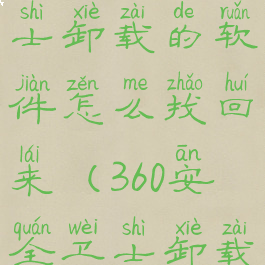 shì xiè zài de ruǎn
士卸载的软
jiàn zěn me zhǎo huí
件怎么找回
lái ān
来(360安
quán wèi shì xiè zài
全卫士卸载